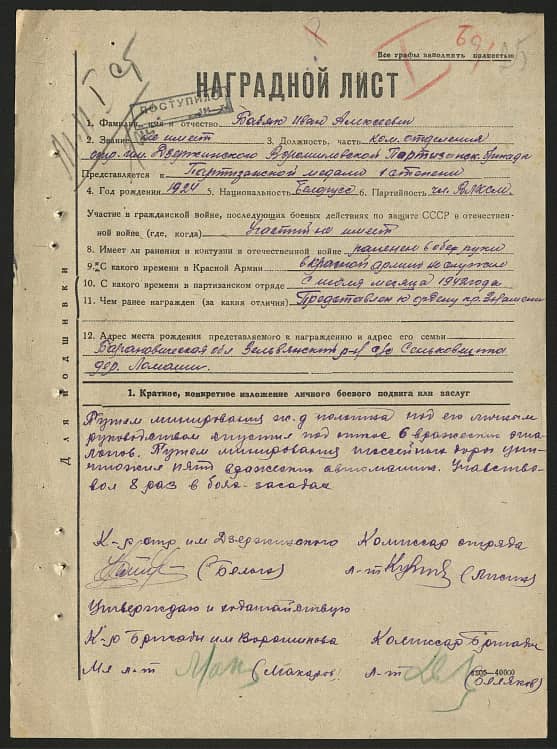 Все графы заполнить полностью
НАГРАДНОЙ ЛИСТ
ПОСТУПИЛО
1. Фамилия, имя и отчество Бабяк Иван Алексеевич
2. Звание не имеет 3. Должность, часть ком. отделения
отр. им. Дзержинского Ворошиловской Партизанск. бригады
Представляется к Партизанской медали 1 степени
4. Год рождения 1924 5. Национальность Беларусс 6. Партийность чл. ВЛКСМ.
Участие в гражданской войне, последующих боевых действиях по защите СССР и отечествен-
ной войне (где, когда) Участий не имеет
8. Имеет ли ранения и контузии в отечественной войне ранен в обе руки
9. С какого времени в Красной Армии в Красной армии не служил
10. С какого времени в партизанском отряде с июля месяца 1942 года
11. Чем ранее награжден (за какия отличия) Представлен к ордену кр. Знамени
12. Адрес места рождения представляемого к награждению и адрес его семьи
Барановичская обл Зельвянский р-н с/с Сеньковщина
дер. Ломаши.
Для подшивки
1. Краткое, конкретное изложение личного боевого подвига или заслуг
Путем минирования ж.д полотна под его личным
руководством спустил под откос 6 вражеских эша-
лонов. Путем минирования шоссейных дорог уни-
чтожил пять вражеских автомашин. Учавство-
вал 8 раз в боях-засадах
К-р отр им Дзержинского Комиссар отряда
л-т
Утверждаю и ходатайствую
К-р Бригады им Ворошилова Комиссар Бригады
Мл л-т (Макаров) л-т (Беляков)
6305—40000